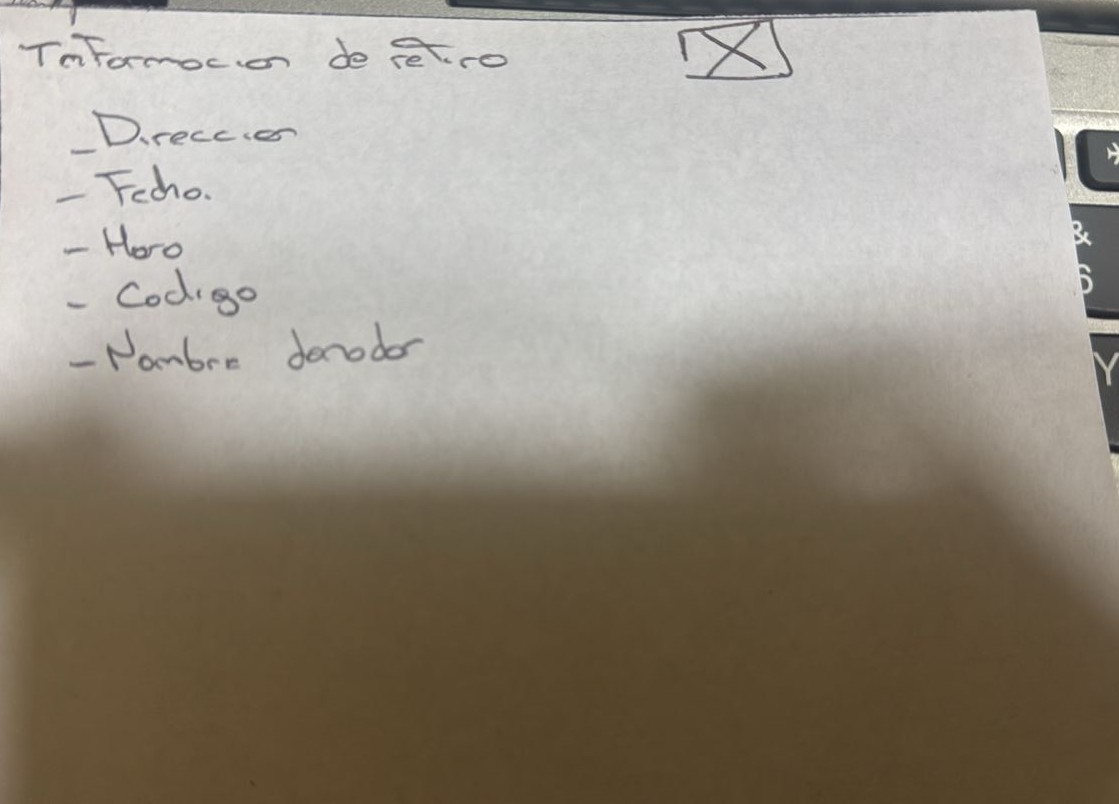 Informacion de retiro
- Direccion
- Fecha.
- Hora
- Codigo
- Nombre donador
&
6
Y